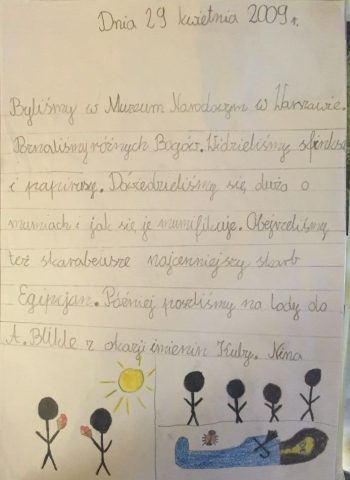 Dnia 29 kwietnia 2009 r.
Byliśmy w Muzeum Narodoczm w Warszawie.
Poznaliśmy różnych Bogów. Widzieliśmy sfinksa
i papirusy. Dowiedzieliśmy się dużo o
mumiach i jak się je mumifikuje. Obejrzeliśmy
też skarabeusze najcenniejszy skarb
Egipcjan. Później poszliśmy na lody do
A. Blikle z okazji imienin Kuby. Nina